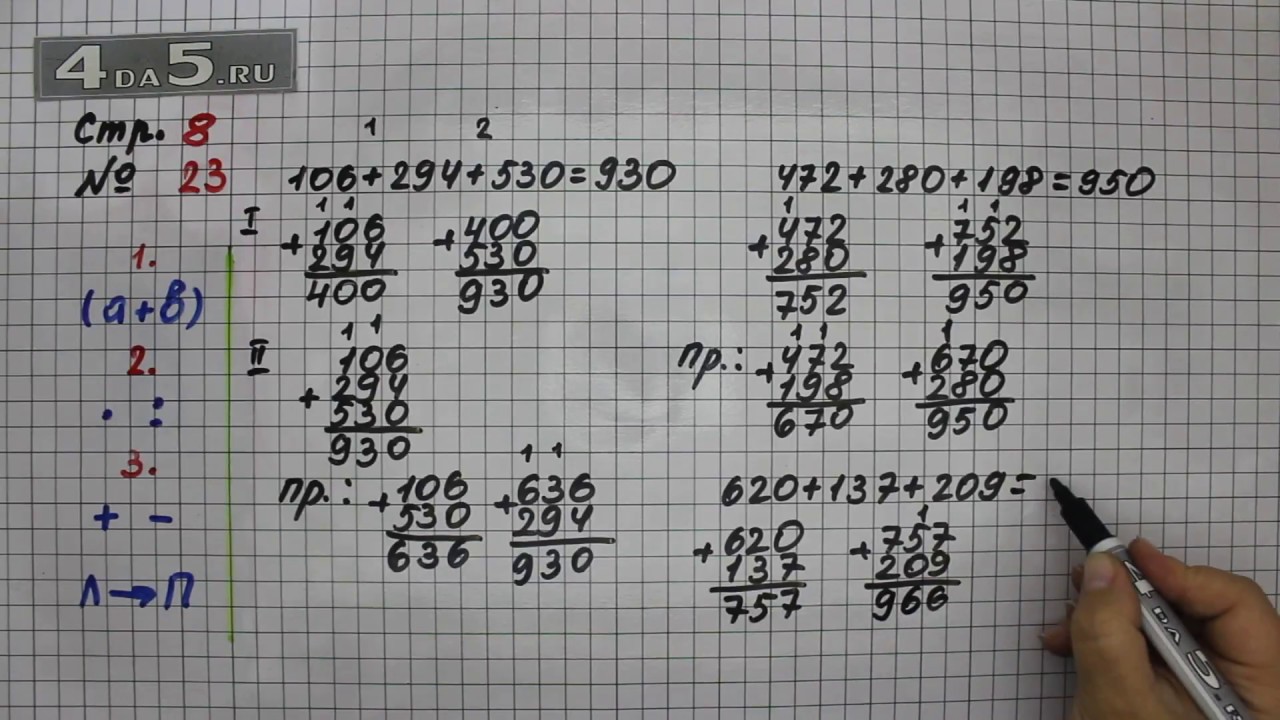 4DA5.RU
Стр. 8
№ 23
1.
(а+в)
2.
· :
3.
+ −
Л→П
1 2
106+294+530=930
I
1 1
+106
294
400
+400
530
930
II
1 1
106
+294
530
930
пр.:
+106
530
636
1 1
+636
294
930
472+280+198=950
1
+472
280
752
1 1
+752
198
950
пр.:
1 1
+472
198
670
1
+670
280
950
620+137+209=
+620
137
757
1
+757
209
966
4DA5.